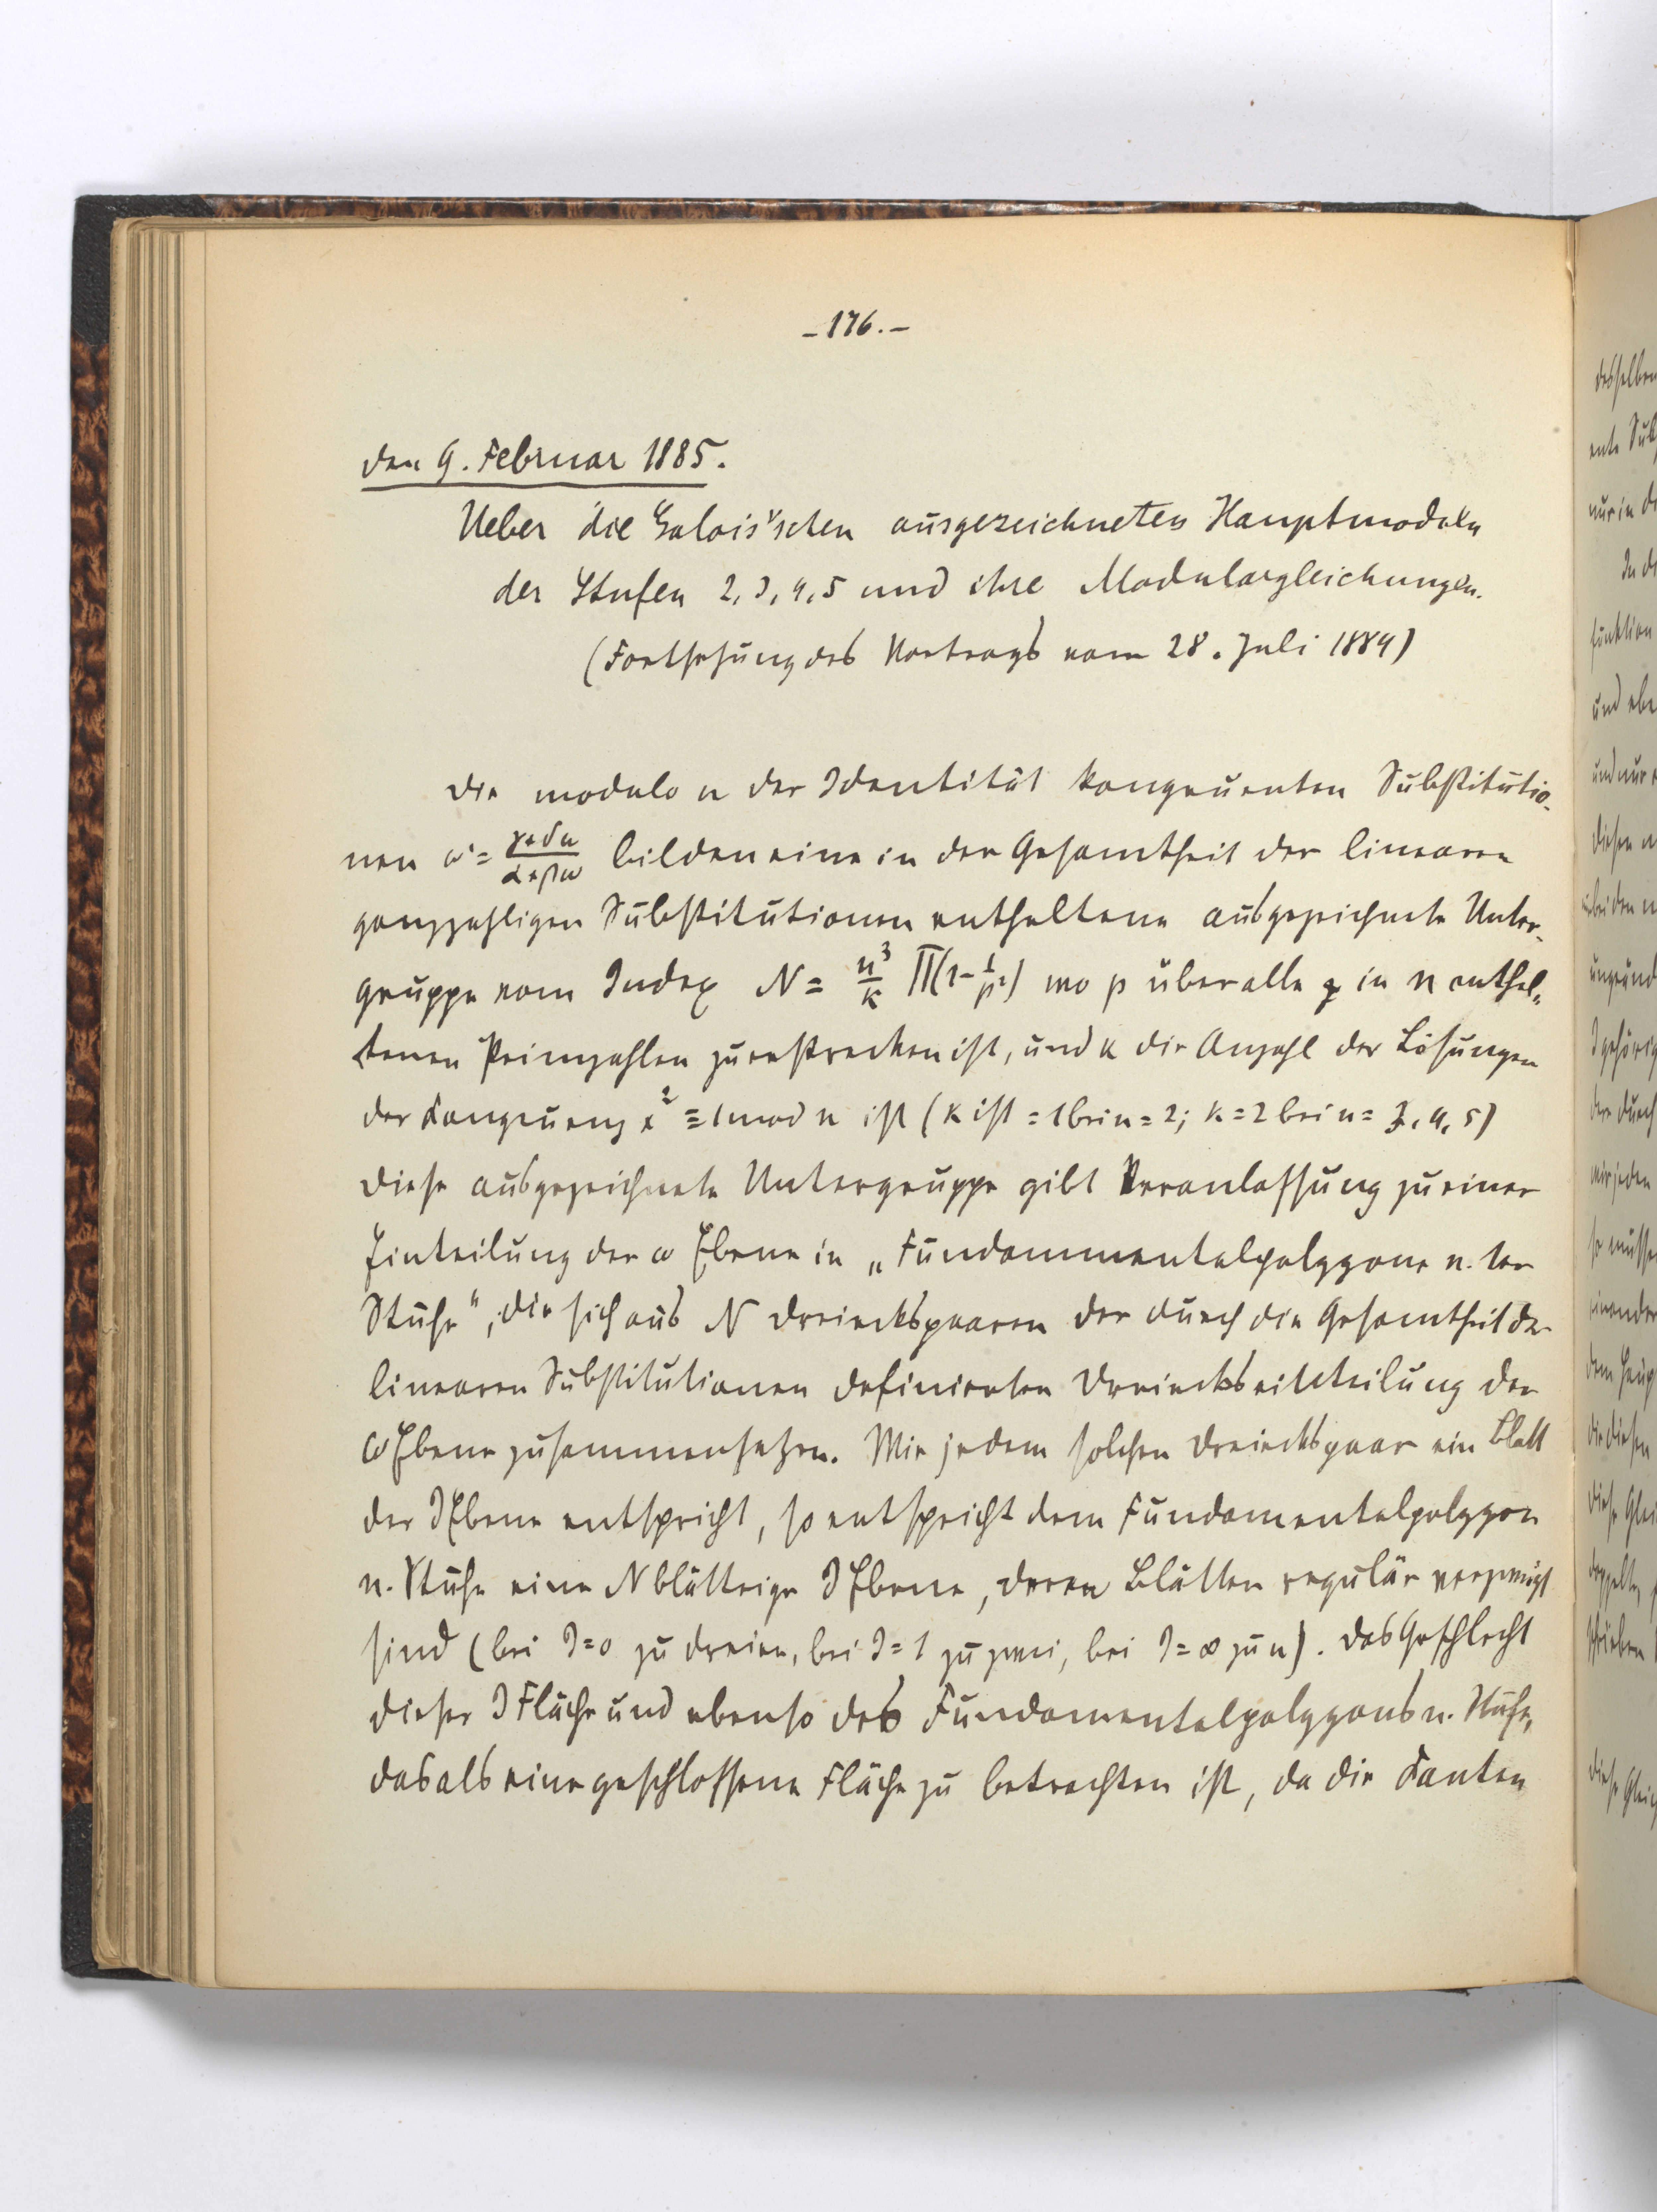 - 176. -
den 9. Februar 1885.
Ueber die Galois'schen ausgezeichneten Hauptmoduln
der Stufen 2, 3, 4, 5 und ihre Modulargleichungen.
(Fortsetzung des Vortrags vom 28. Juli 1884)
Die modulo n der Identität kongruenten Substitutio-
nen ω' = (γ+δω)/(α+βω) bilden eine in der Gesamtheit der linearen
ganzzahligen Substitutionen enthaltene ausgezeichnete Unter-
gruppe vom Index N = n³/k ∏(1-1/p²) wo p über alle in n enthal-
tenen Primzahlen zu erstrecken ist, und k die Anzahl der Lösungen
der Kongruenz x² ≡ 1 mod n ist (k ist = 1 bei n = 2; k = 2 bei n = 3, 4, 5)
Diese ausgezeichnete Untergruppe gibt Veranlassung zu einer
Einteilung der ω Ebene in „Fundammentalpolygone n. ter
Stufe", die sich aus N Dreieckspaaren der durch die Gesamtheit der
linearen Substitutionen definierten Dreieckseinteilung der
ω Ebene zusammensetzen. Wie jedem solchen Dreieckspaar ein Blatt
der J Ebene entspricht, so entspricht dem Fundamentalpolygon
n. Stufe eine N blättrige J Ebene, deren Blätter regulär verzweigt
sind (bei J=0 zu dreien, bei J=1 zu zwei, bei J=∞ zu n). Das Geschlecht
dieser J Fläche und ebenso des Fundamentalpolygons n. Stufe,
das als eine geschlossene Fläche zu betrachten ist, da die Kanten